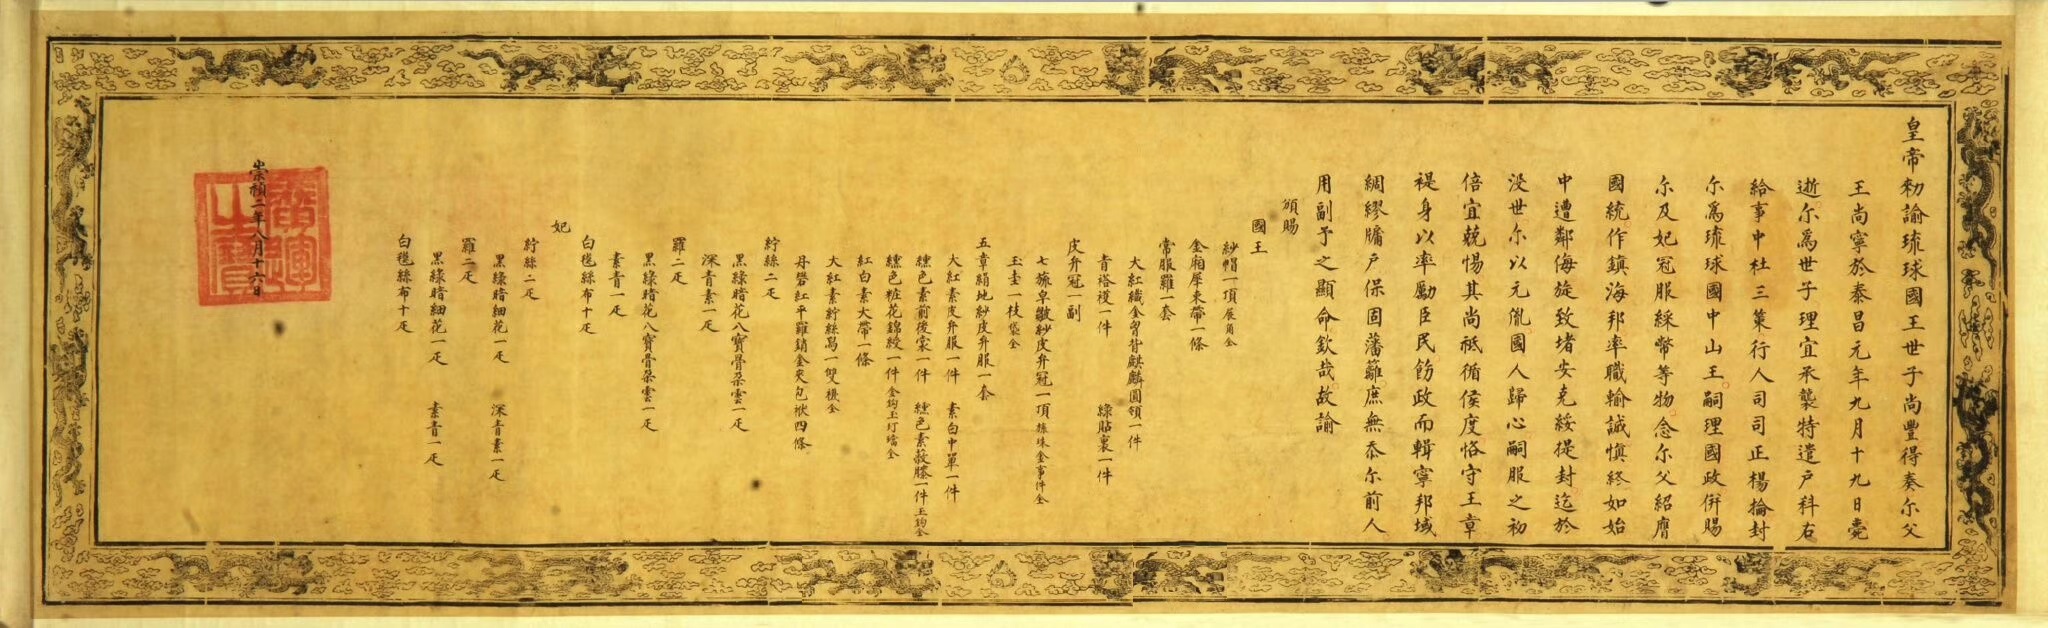 皇帝勑諭琉球國王世子尚豐得奏尓父
王尚寧於泰昌元年九月十九日薨
逝尓爲世子理宜承襲特遣戶科右
給事中杜三策行人司司正楊掄封
尓爲琉球國中山王嗣理國政併賜
尓及妃冠服綵幣等物念尓父紹膺
國統作鎮海邦率職輸誠慎終如始
中遭鄰侮旋致堵安克綏提封迄於
沒世尓以元胤國人歸心嗣服之初
倍宜兢惕其尚祗循侯度恪守王章
禔身以率勵臣民飭政而輯寧邦域
綢繆牖戶保固藩籬庶無忝尓前人
用副予之顯命欽哉故諭
頒賜
國王
紗帽一頂展角全
金廂犀束帶一條
常服羅一套
大紅織金胷背麒麟圓領一件
青褡𧞤一件 綠貼裏一件
皮弁冠一副
七旒皁皺紗皮弁冠一頂旒珠金事件全
玉圭一枝袋全
五章絹地紗皮弁服一套
大紅素皮弁服一件 素白中單一件
纁色素前後裳一件 纁色素蔽膝一件玉鈎全
纁色粧花錦綬一件金鈎玉玎璫全
紅白素大帶一條
大紅素紵絲舄一雙襪全
丹礬紅平羅銷金夾包袱四條
紵絲二疋
黑綠暗花八寶骨朶雲一疋
深青素一疋
羅二疋
黑綠暗花八寶骨朶雲一疋
素青一疋
白氁絲布十疋
妃
紵絲二疋
黑綠暗細花一疋 深青素一疋
羅二疋
黑綠暗細花一疋 素青一疋
白氁絲布十疋
崇禎二年八月十六日